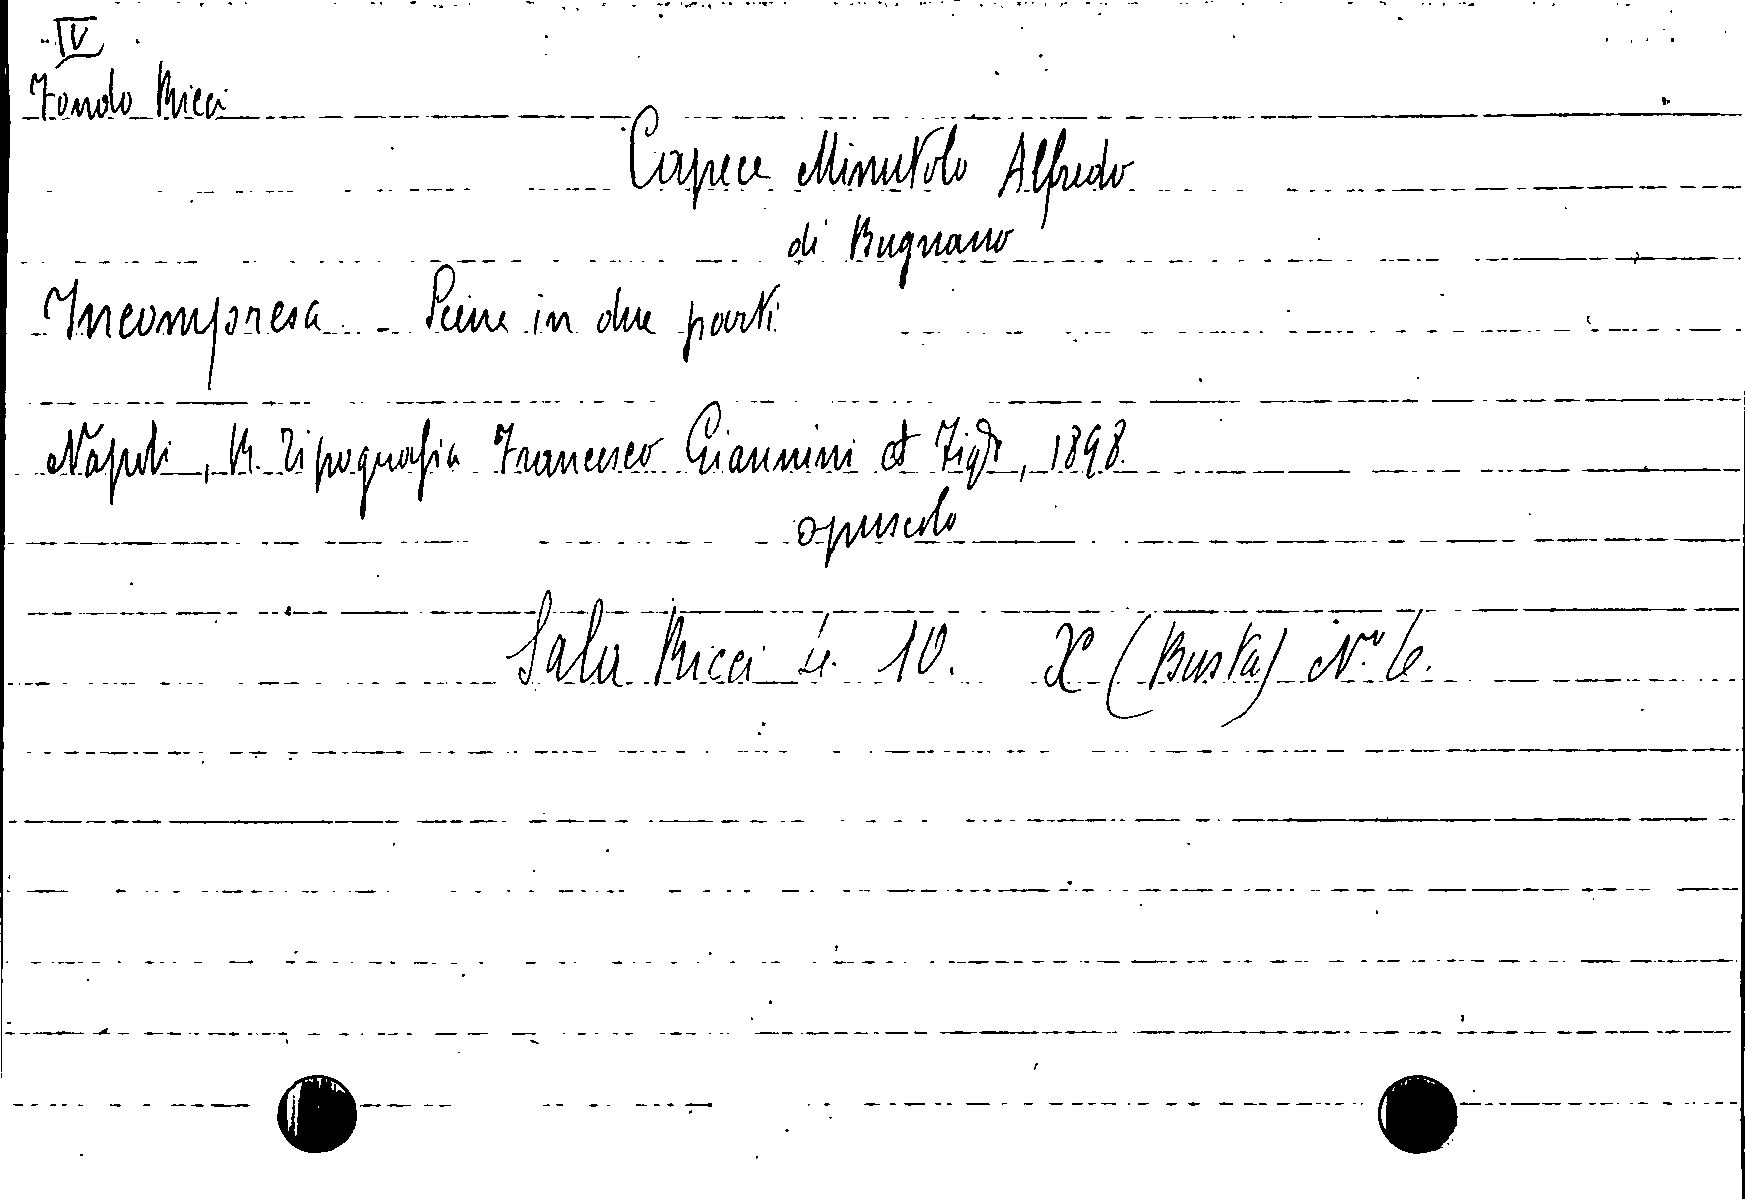 IV
Fondo Ricci
Capece Minutolo Alfredo
di Bugnano
Incompresa - Scene in due parti
Napoli, R. Tipografia Francesco Giannini & Figli, 1898
opuscolo
Sala Ricci 4. 10. X (Busta) N.º 6.